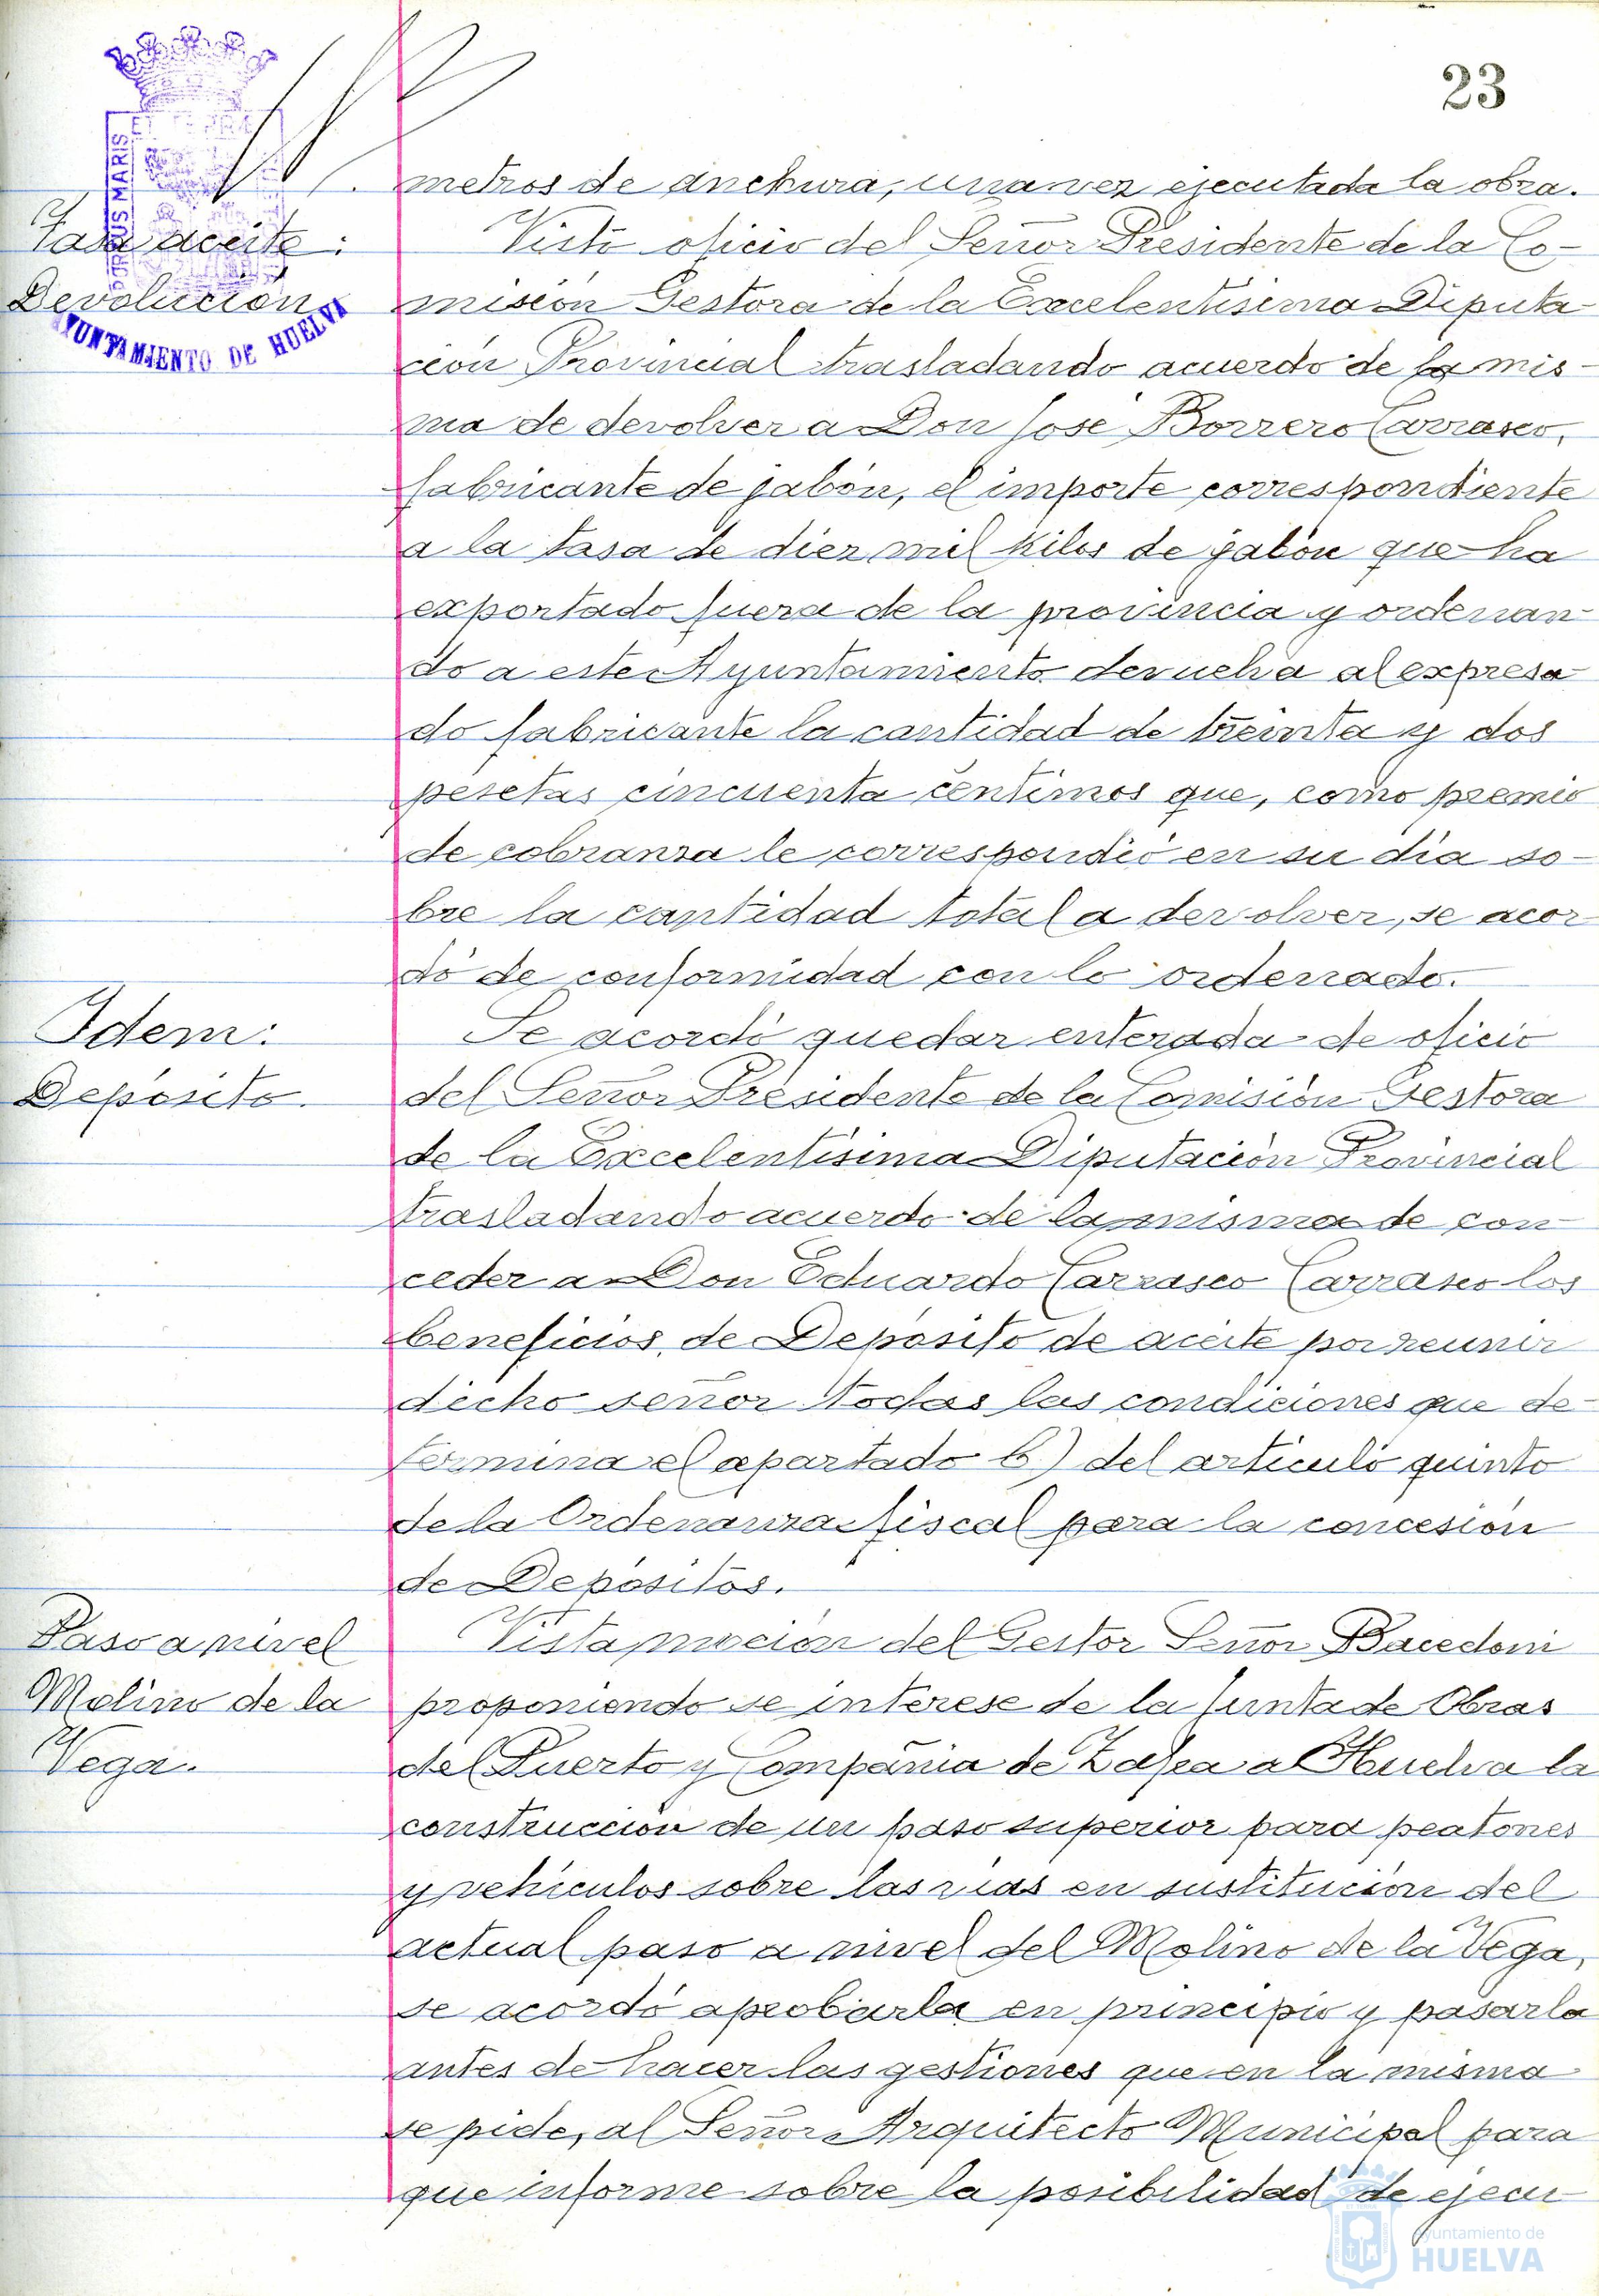 23
metros de anchura, una vez ejecutada la obra.
Tasa aceite:
Devolución
PORTUS MARIS
AYUNTAMIENTO DE HUELVA
Visto oficio del Señor Presidente de la Co-
misión Gestora de la Excelentísima Diputa-
ción Provincial trasladando acuerdo de la mis-
ma de devolver a Don José Borrero Carrasco,
fabricante de jabón, el importe correspondiente
a la tasa de diez mil kilos de jabón que ha
exportado fuera de la provincia y ordenan-
do a este Ayuntamiento devuelva al expresa-
do fabricante la cantidad de treinta y dos
pesetas cincuenta céntimos que, como premio
de cobranza le correspondió en su día so-
bre la cantidad total a devolver, se acor-
dó de conformidad con lo ordenado.
Idem:
Depósito.
Se acordó quedar enterada de oficio
del Señor Presidente de la Comisión Gestora
de la Excelentísima Diputación Provincial
trasladando acuerdo de la misma de con-
ceder a Don Eduardo Carrasco Carrasco los
beneficios de Depósito de aceite por reunir
dicho señor todas las condiciones que de-
termina el apartado b) del artículo quinto
de la Ordenanza fiscal para la concesión
de Depósitos.
Paso a nivel
Molino de la
Vega.
Vista moción del Gestor Señor Bacedoni
proponiendo se interese de la Junta de Obras
del Puerto y Compañia de Zafra a Huelva la
construcción de un paso superior para peatones
y vehículos sobre las vías en sustitución del
actual paso a nivel del Molino de la Vega,
se acordó aprobarla en principio y pasarla
antes de hacer las gestiones que en la misma
se pide, al Señor Arquitecto Municipal para
que informe sobre la posibilidad de ejecu-
Ayuntamiento de
HUELVA